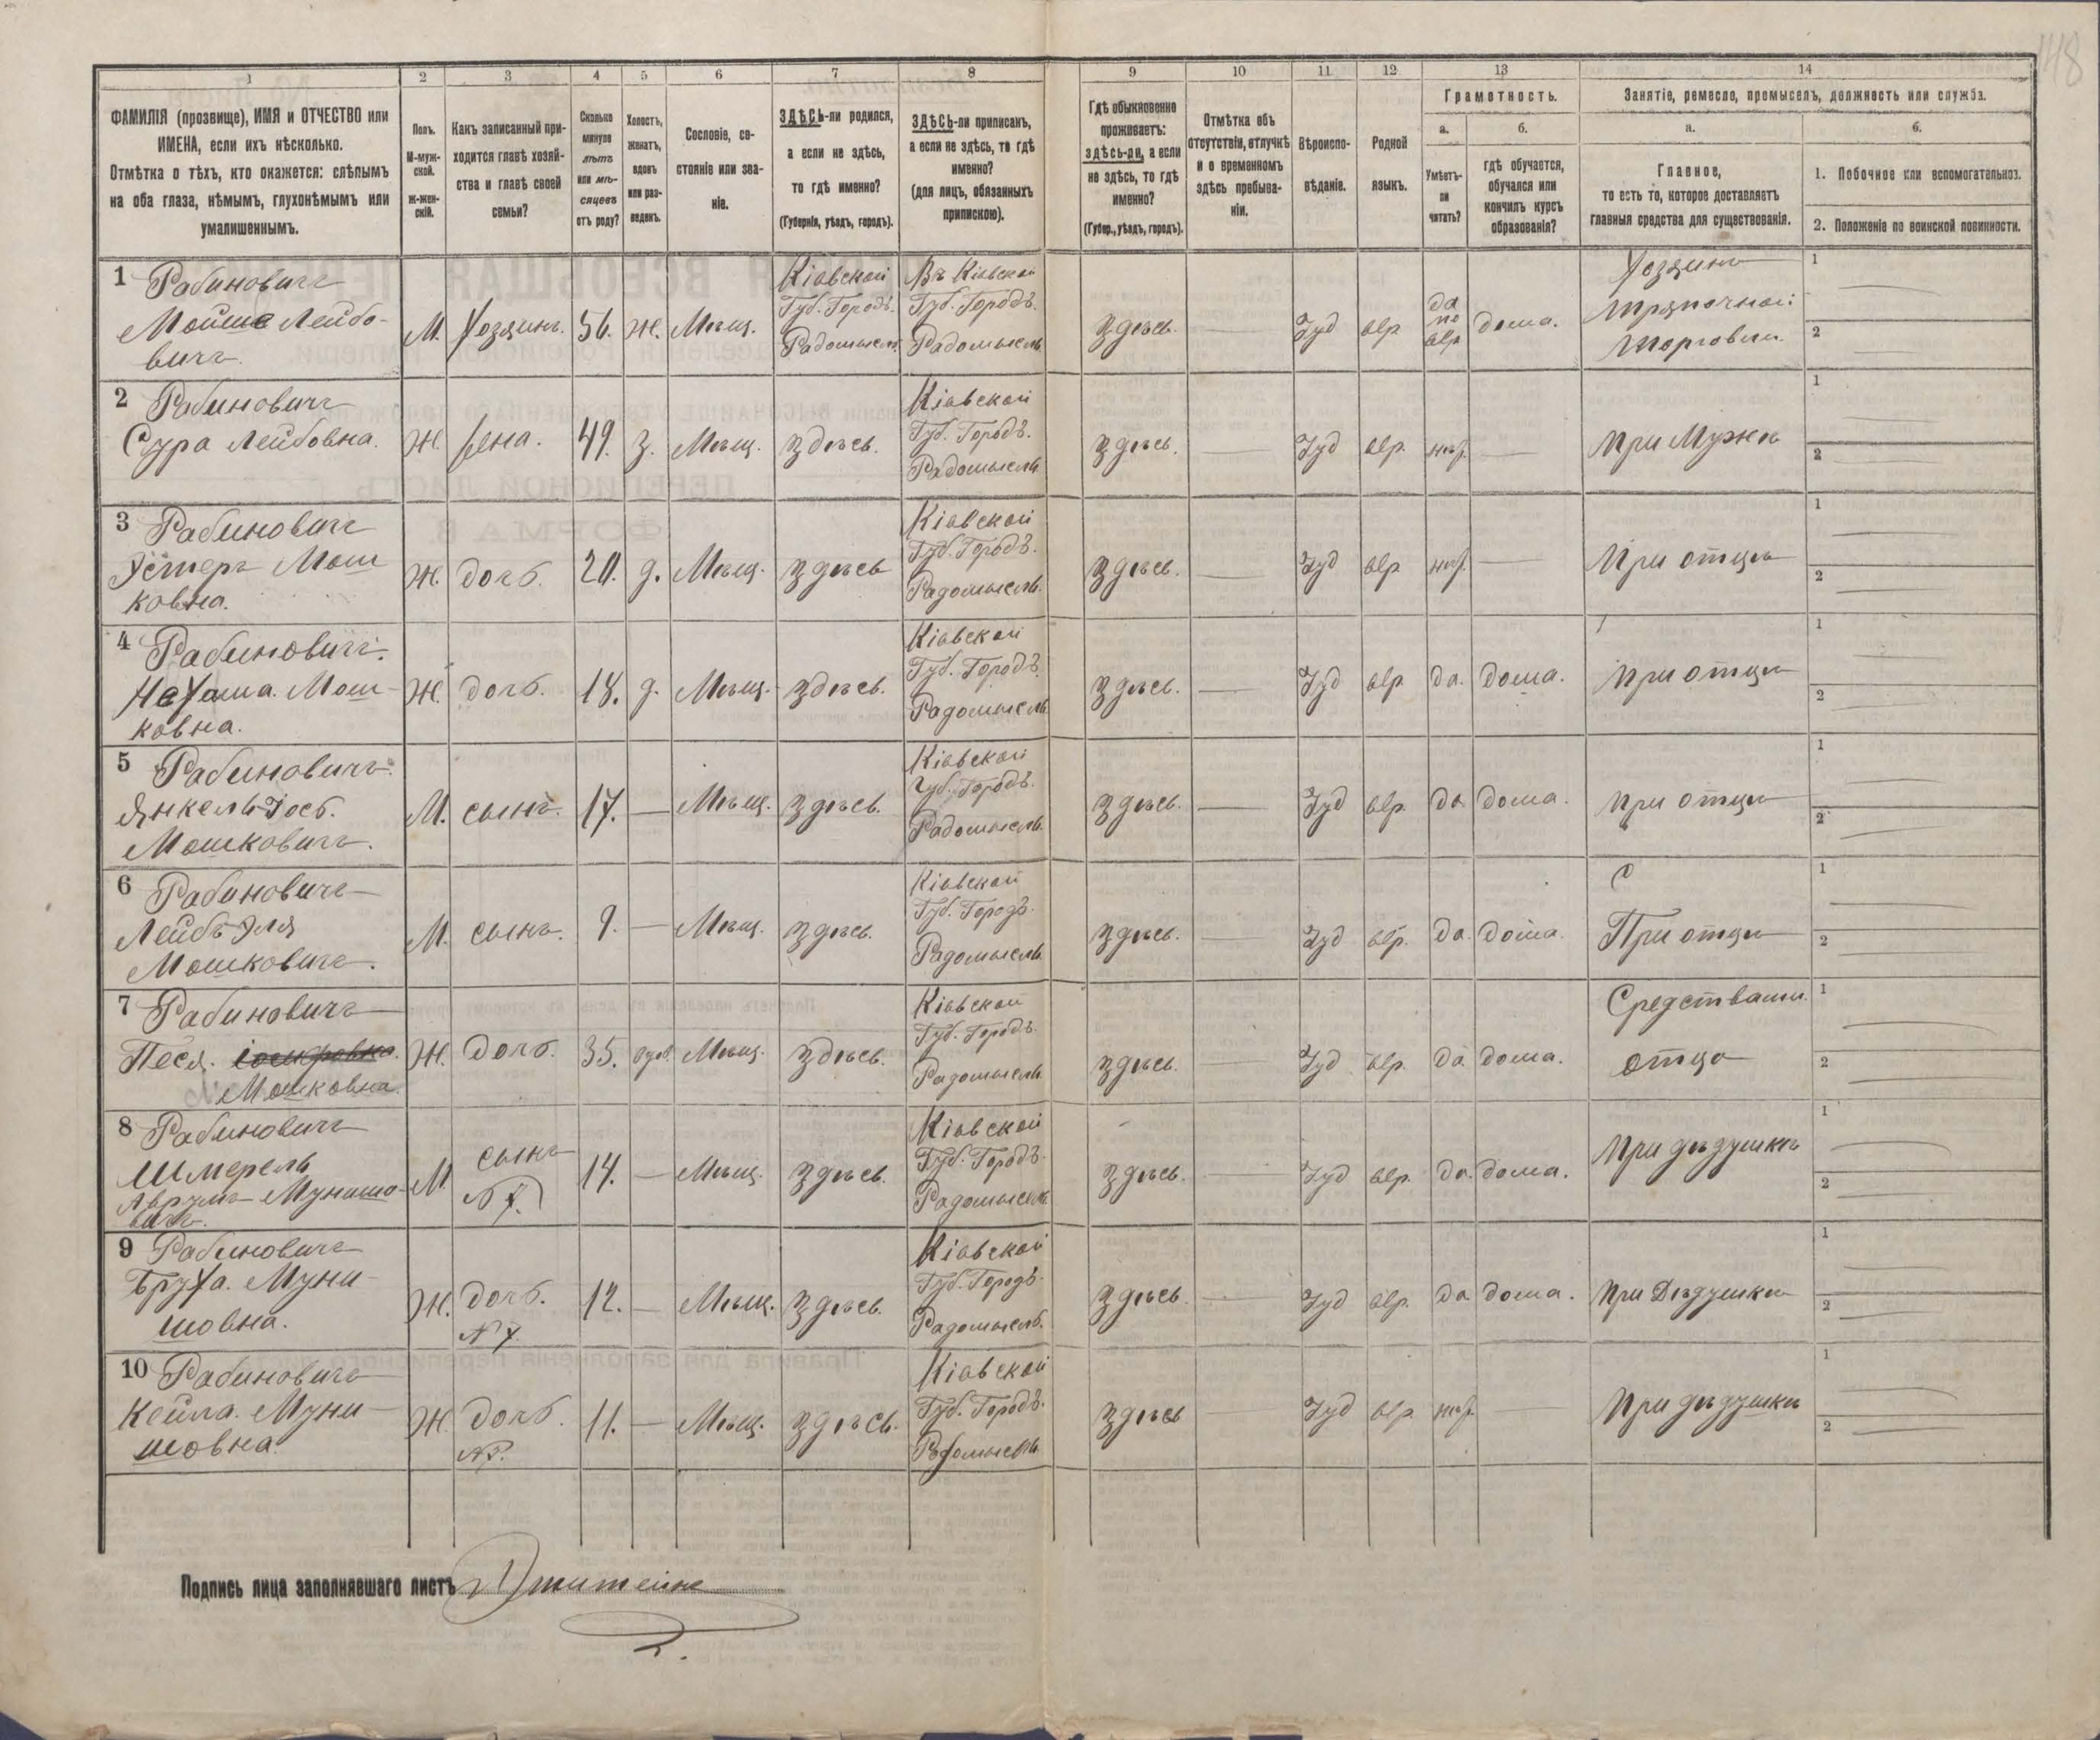 148
1 2 3 4 5 6 7 8 9 10 11 12 13 14
ФАМИЛІЯ (прозвище), ИМЯ и ОТЧЕСТВО или
ИМЕНА, если ихъ нѣсколько.
Отмѣтка о тѣхъ, кто окажется: слѣпымъ
на оба глаза, нѣмымъ, глухонѣмымъ или
умалишеннымъ.
Полъ.
М-муж-
ской.
Ж-жен-
скій.
Какъ записанный при-
ходится главѣ хозяй-
ства и главѣ своей
семьи?
Сколько
минуло
лѣтъ
или мѣ-
сяцевъ
отъ роду?
Холостъ,
женатъ,
вдовъ
или раз-
веденъ.
Сословіе, со-
стояніе или зва-
ніе.
ЗДѢСЬ-ли родился,
а если не здѣсь,
то гдѣ именно?
(Губернія, уѣздъ, городъ).
ЗДѢСЬ-ли приписанъ,
а если не здѣсь, то гдѣ
именно?
(для лицъ, обязанныхъ
припискою).
Гдѣ обыкновенно
проживаетъ:
здѣсь-ли, а если
не здѣсь, то гдѣ
именно?
(Губер., уѣздъ, городъ).
Отмѣтка объ
отсутствіи, отлучкѣ
и о временномъ
здѣсь пребыва-
ніи.
Вѣроиспо-
вѣданіе.
Родной
языкъ.
Грамотность.
а.
Умѣетъ-
ли
читать?
б.
гдѣ обучается,
обучался или
кончилъ курсъ
образованія?
Занятіе, ремесло, промыселъ, должность или служба.
а.
Главное,
то есть то, которое доставляетъ
главныя средства для существованія.
б.
1. Побочное или вспомогательное.
2. Положеніе по воинской повинности.
1 Рабиновичъ
Мойше Лейбо-
вичъ
М. Хозяинъ. 56. Ж. Мѣщ.
Кіевской
Губ. Городъ.
Радомысль.
Въ Кіевской
Губ. Городъ.
Радомысль
здѣсь. Іуд евр
да
по
евр
дома.
Хозяинъ
тряпочной
торговли.
1
2
2 Рабиновичъ
Сура Лейбовна.
Ж. жена. 49. З. Мѣщ. здѣсь.
Кіевской
Губ. Городъ.
Радомысль
здѣсь. — Іуд евр. нѣт. — при Мужѣ
1
2
3 Рабиновичъ
Эстеръ Мош
ковна.
Ж. дочь. 20. д. Мѣщ. здѣсь
Кіевской
Губ. Городъ.
Радомысль.
здѣсь. — Іуд евр нѣт. — При отцѣ
1
2
4 Рабиновичъ.
Нехама. Мош-
ковна.
Ж. дочь. 18. д. Мѣщ. здѣсь.
Кіевской
Губ. Городъ.
Радомысль
здѣсь. — Іуд евр да. дома. при отцѣ
1
2
5 Рабиновичъ.
Янкель-Іось.
Мошковичъ.
М. сынъ. 17. — Мѣщ. здѣсь.
Кіевской
Губ. Городъ.
Радомысль.
здѣсь. — Іуд евр. да дома. при отцѣ
1
2
6 Рабиновичъ
Лейбъ Эля
Мошковичъ.
М. сынъ. 9. — Мѣщ. здѣсь.
Кіевской
Губ. Городъ.
Радомысль
здѣсь. — Іуд евр. да. дома. При отцѣ
1
2
7 Рабиновичъ
Песя.
Мошковна.
Ж. Дочь. 35. Мѣщ. здѣсь.
Кіевской
Губ. Городъ.
Радомысль
здѣсь. — Іуд евр. да дома.
Средствами
отца
1
2
8 Рабиновичъ
Шмерель
Аврумъ Мунишо-
вичъ.
М
сынъ
№ 7.
14. — Мѣщ. здѣсь.
Кіевской
Губ. Городъ.
Радомысль.
здѣсь. — Іуд евр. да. дома. При дѣдушкѣ
1
2
9 Рабиновичъ
Бруха. Муни-
шовна.
Ж. дочь.
№ 7.
12. — Мѣщ. здѣсь.
Кіевской
Губ. Городъ.
Радомысль.
здѣсь. — Іуд евр. да дома. при Дѣдушкѣ
1
2
10 Рабиновичъ
Кейла. Муни-
шовна.
Ж. дочь.
№ 7.
11. — Мѣщ. здѣсь.
Кіевской
Губ. Городъ.
Радомысль.
здѣсь — Іуд евр. нѣт. — При дѣдушкѣ
1
2
Подпись лица заполнявшаго листъ